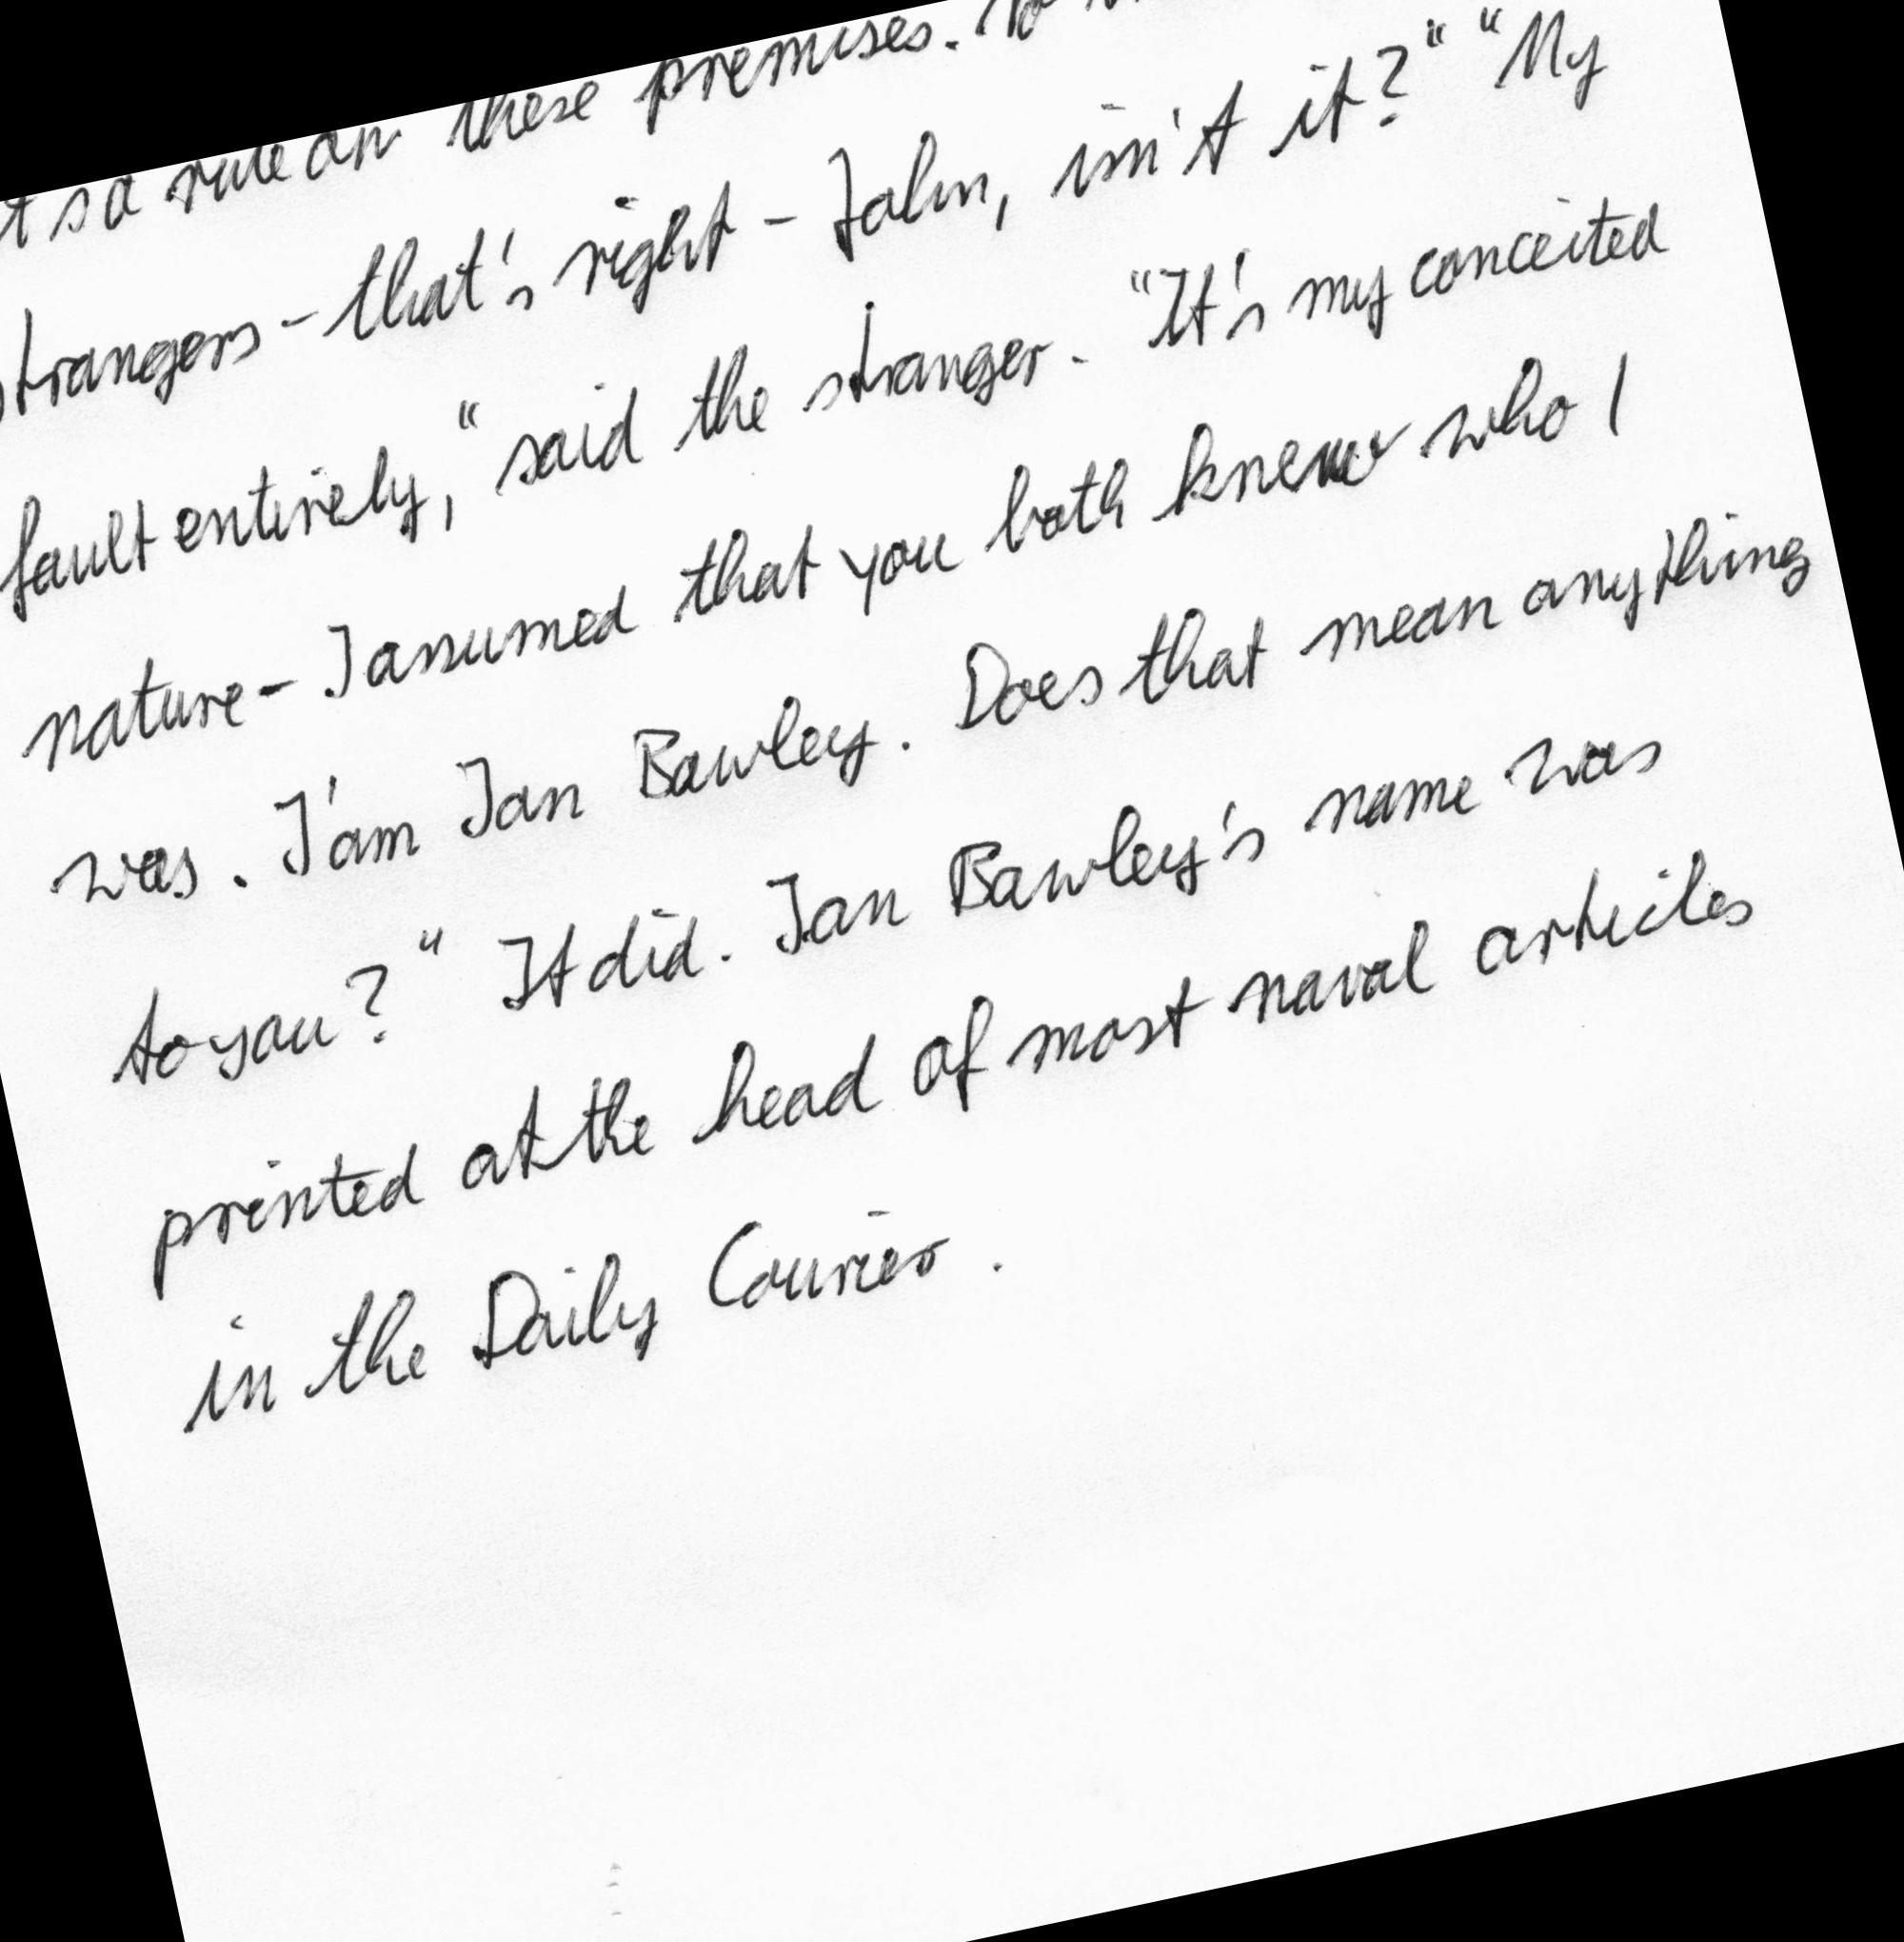 a rule on these premises.
strangers - that's right - John, isn't it?" "My
fault entirely," said the stranger. "It's my conceited
nature - I assumed that you both knew who I
was. I'am Ian Bawley. Does that mean anything
to you?" It did. Ian Bawley's name was
printed at the head of most naval articles
in the Daily Courier.